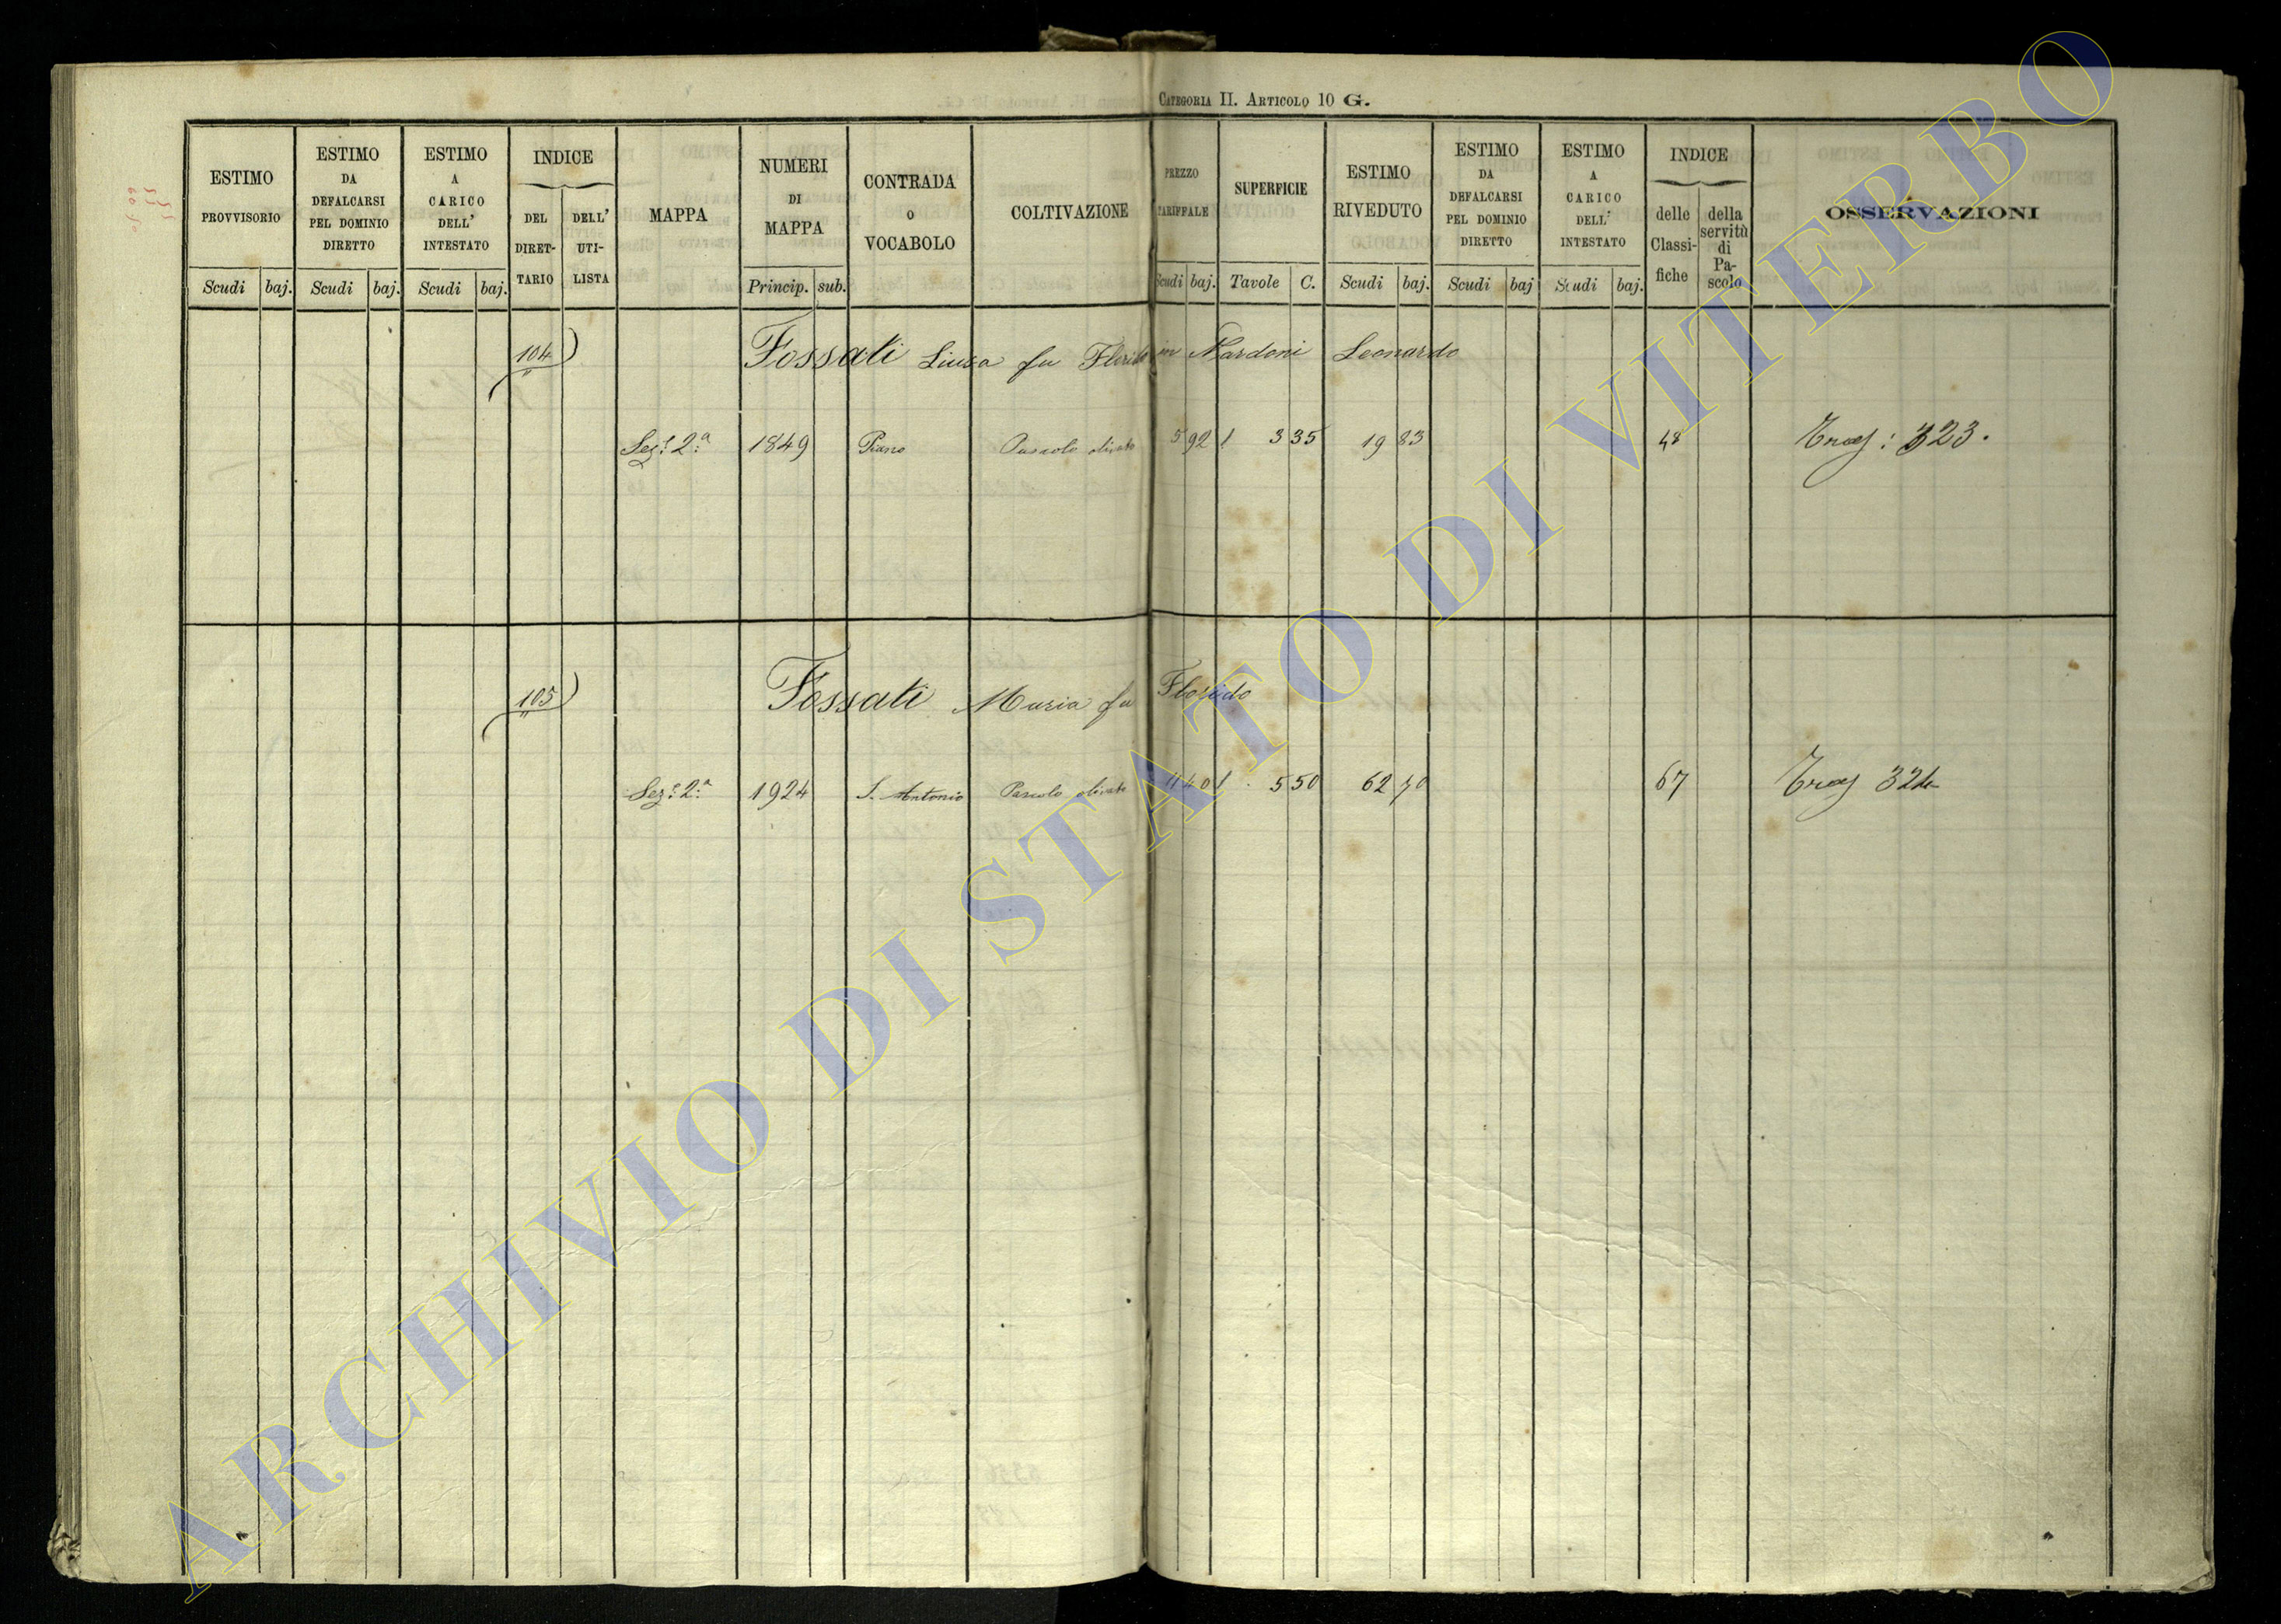 Categoria II. Articolo 10 G.
ESTIMO PROVVISORIO Scudi baj.
ESTIMO DA DEFALCARSI PEL DOMINIO DIRETTO Scudi baj.
ESTIMO A CARICO DELL' INTESTATO Scudi baj.
INDICE DEL DIRET-TARIO DELL' UTI-LISTA
MAPPA
NUMERI DI MAPPA Princip. sub.
CONTRADA O VOCABOLO
COLTIVAZIONE
PREZZO TARIFFALE Scudi baj.
SUPERFICIE Tavole C.
ESTIMO RIVEDUTO Scudi baj.
ESTIMO DA DEFALCARSI PEL DOMINIO DIRETTO Scudi baj
ESTIMO A CARICO DELL' INTESTATO Scudi baj.
INDICE delle Classi-fiche della servitù di Pa-scolo
OSSERVAZIONI
104 Fossati Luisa fu Florido in Nardoni Leonardo
Sez. 2.a 1849 Piano Pascolo olivato 5 92 3 35 19 83 48 323.
105 Fossati Maria fu Florido
Sez. 2.a 1924 S. Antonio Pascolo olivato 11 40 5 50 62 70 67 324
ARCHIVIO DI STATO DI VITERBO